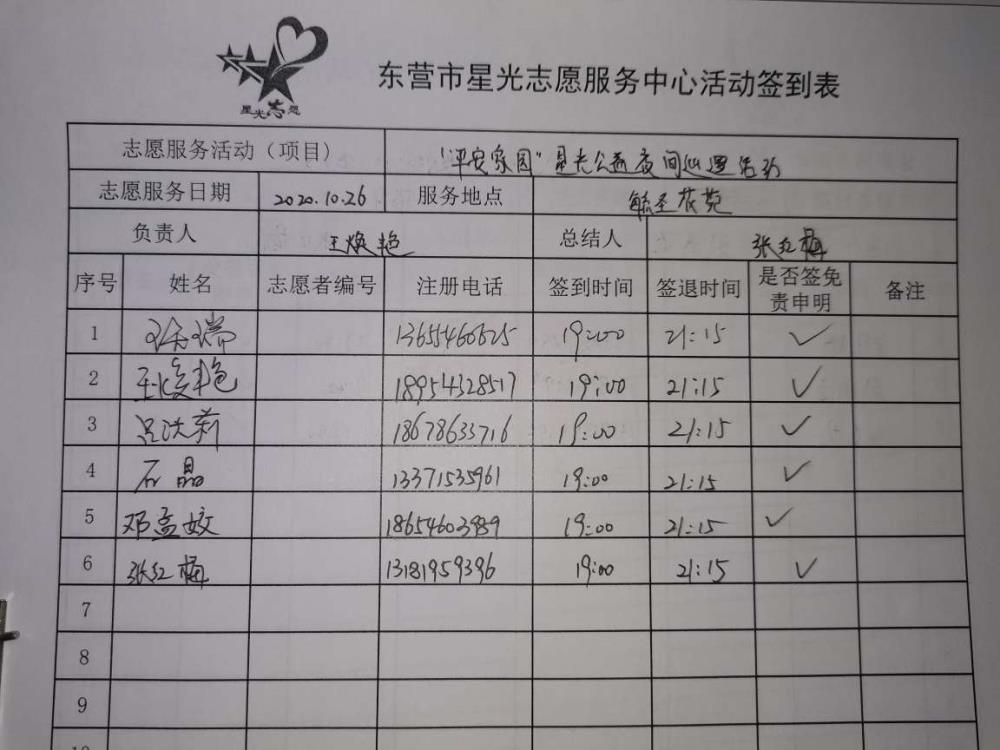 星光志愿
东营市星光志愿服务中心活动签到表
志愿服务活动（项目） “平安家园”星光公益夜间巡逻活动
志愿服务日期 2020.10.26 服务地点
负责人 王焕艳 总结人 张红梅
序号 姓名 志愿者编号 注册电话 签到时间 签退时间 是否签免责申明 备注
1 13655460625 19:00 21:15 ✓
2 王焕艳 18954328517 19:00 21:15 ✓
3 吕洪莉 18678633716 19:00 21:15 ✓
4 石晶 13371535961 19:00 21:15 ✓
5 邓孟姣 18654603989 19:00 21:15 ✓
6 张红梅 13181959396 19:00 21:15 ✓
7
8
9
10